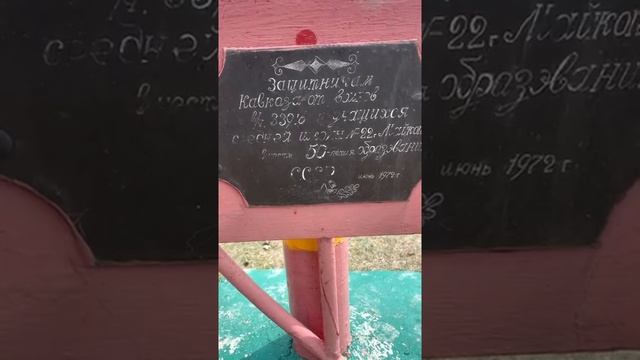 Защитникам
Кавказа от воинов
и учащихся
средней школы №22 г. Майкоп
в честь 50-летия образовани
СССР июнь 1972 г.